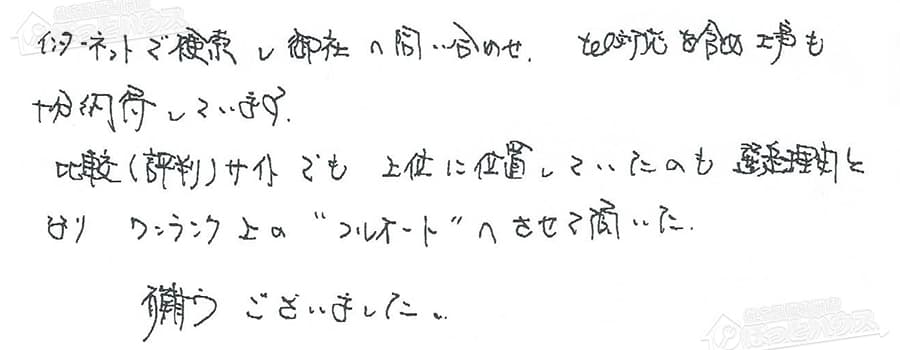 インターネットで検索し御社へ問い合わせ. tel対応を含め工事も
十分納得しています.
比較(評判)サイトでも 上位に位置していたのも 選択理由と
なり ワンランク上の "フルオート" へさせて頂いた.
有難う ございました.